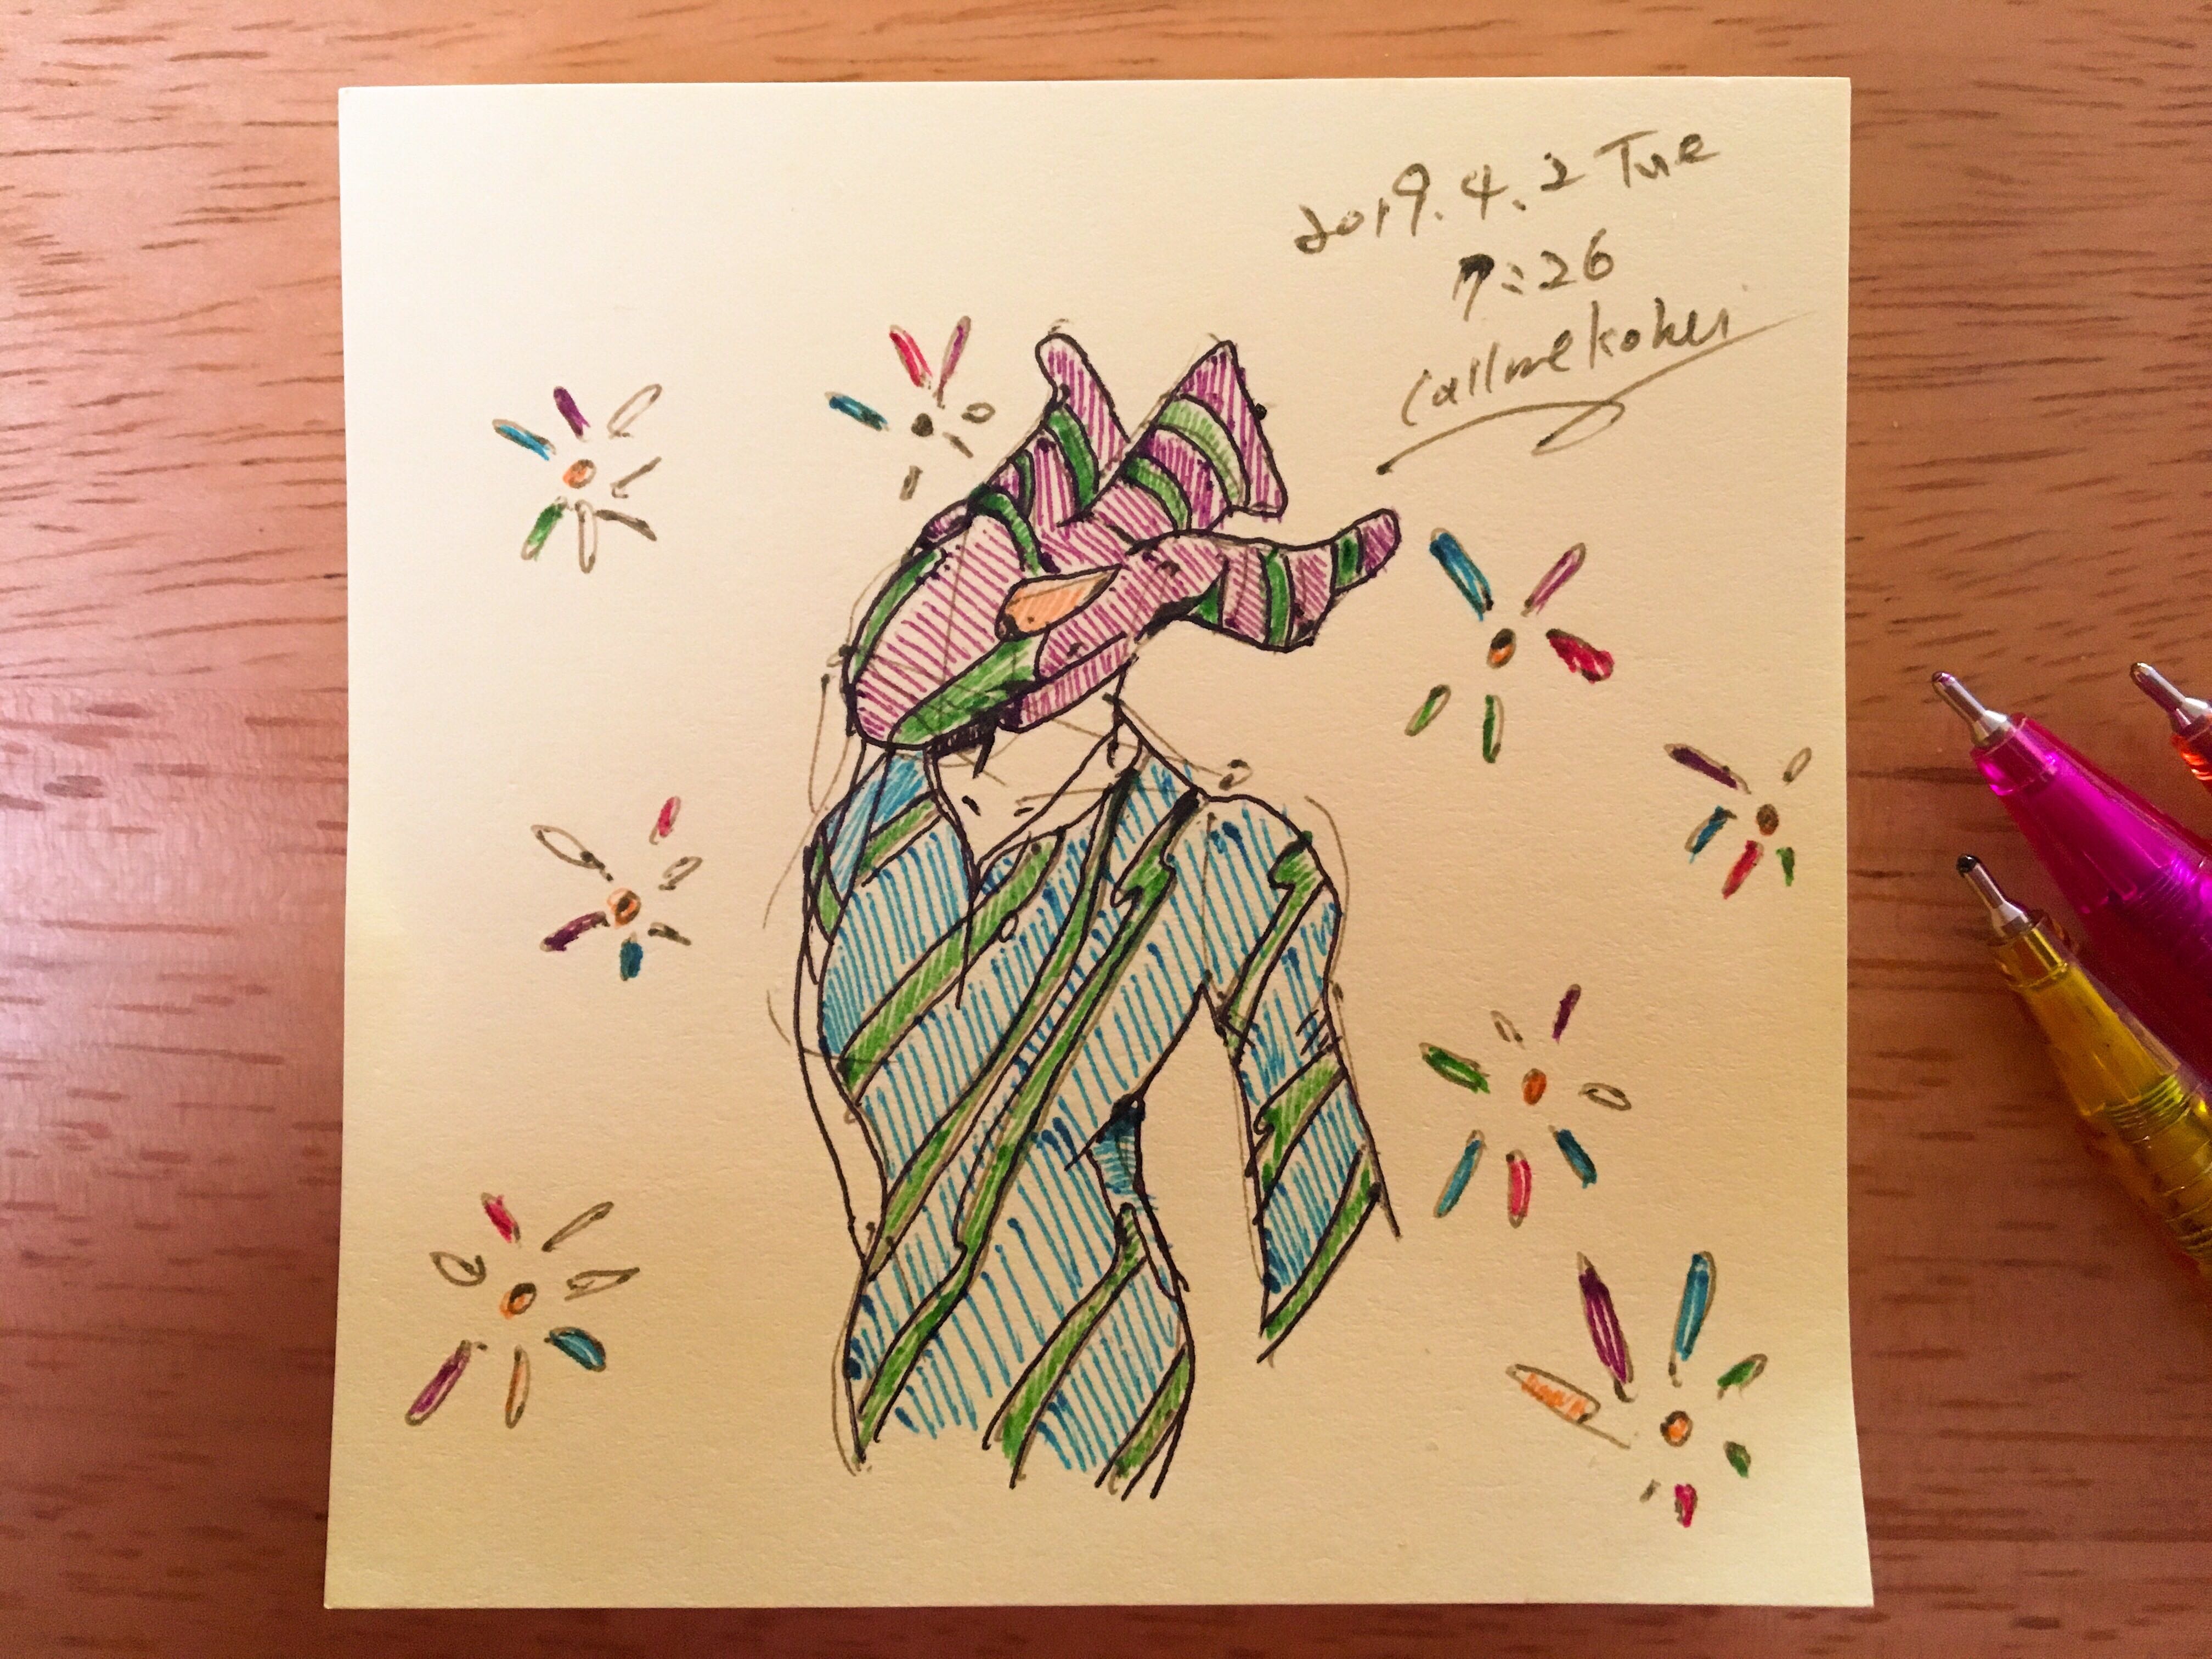 2019.4.2 Tue
7:26
callmekohei